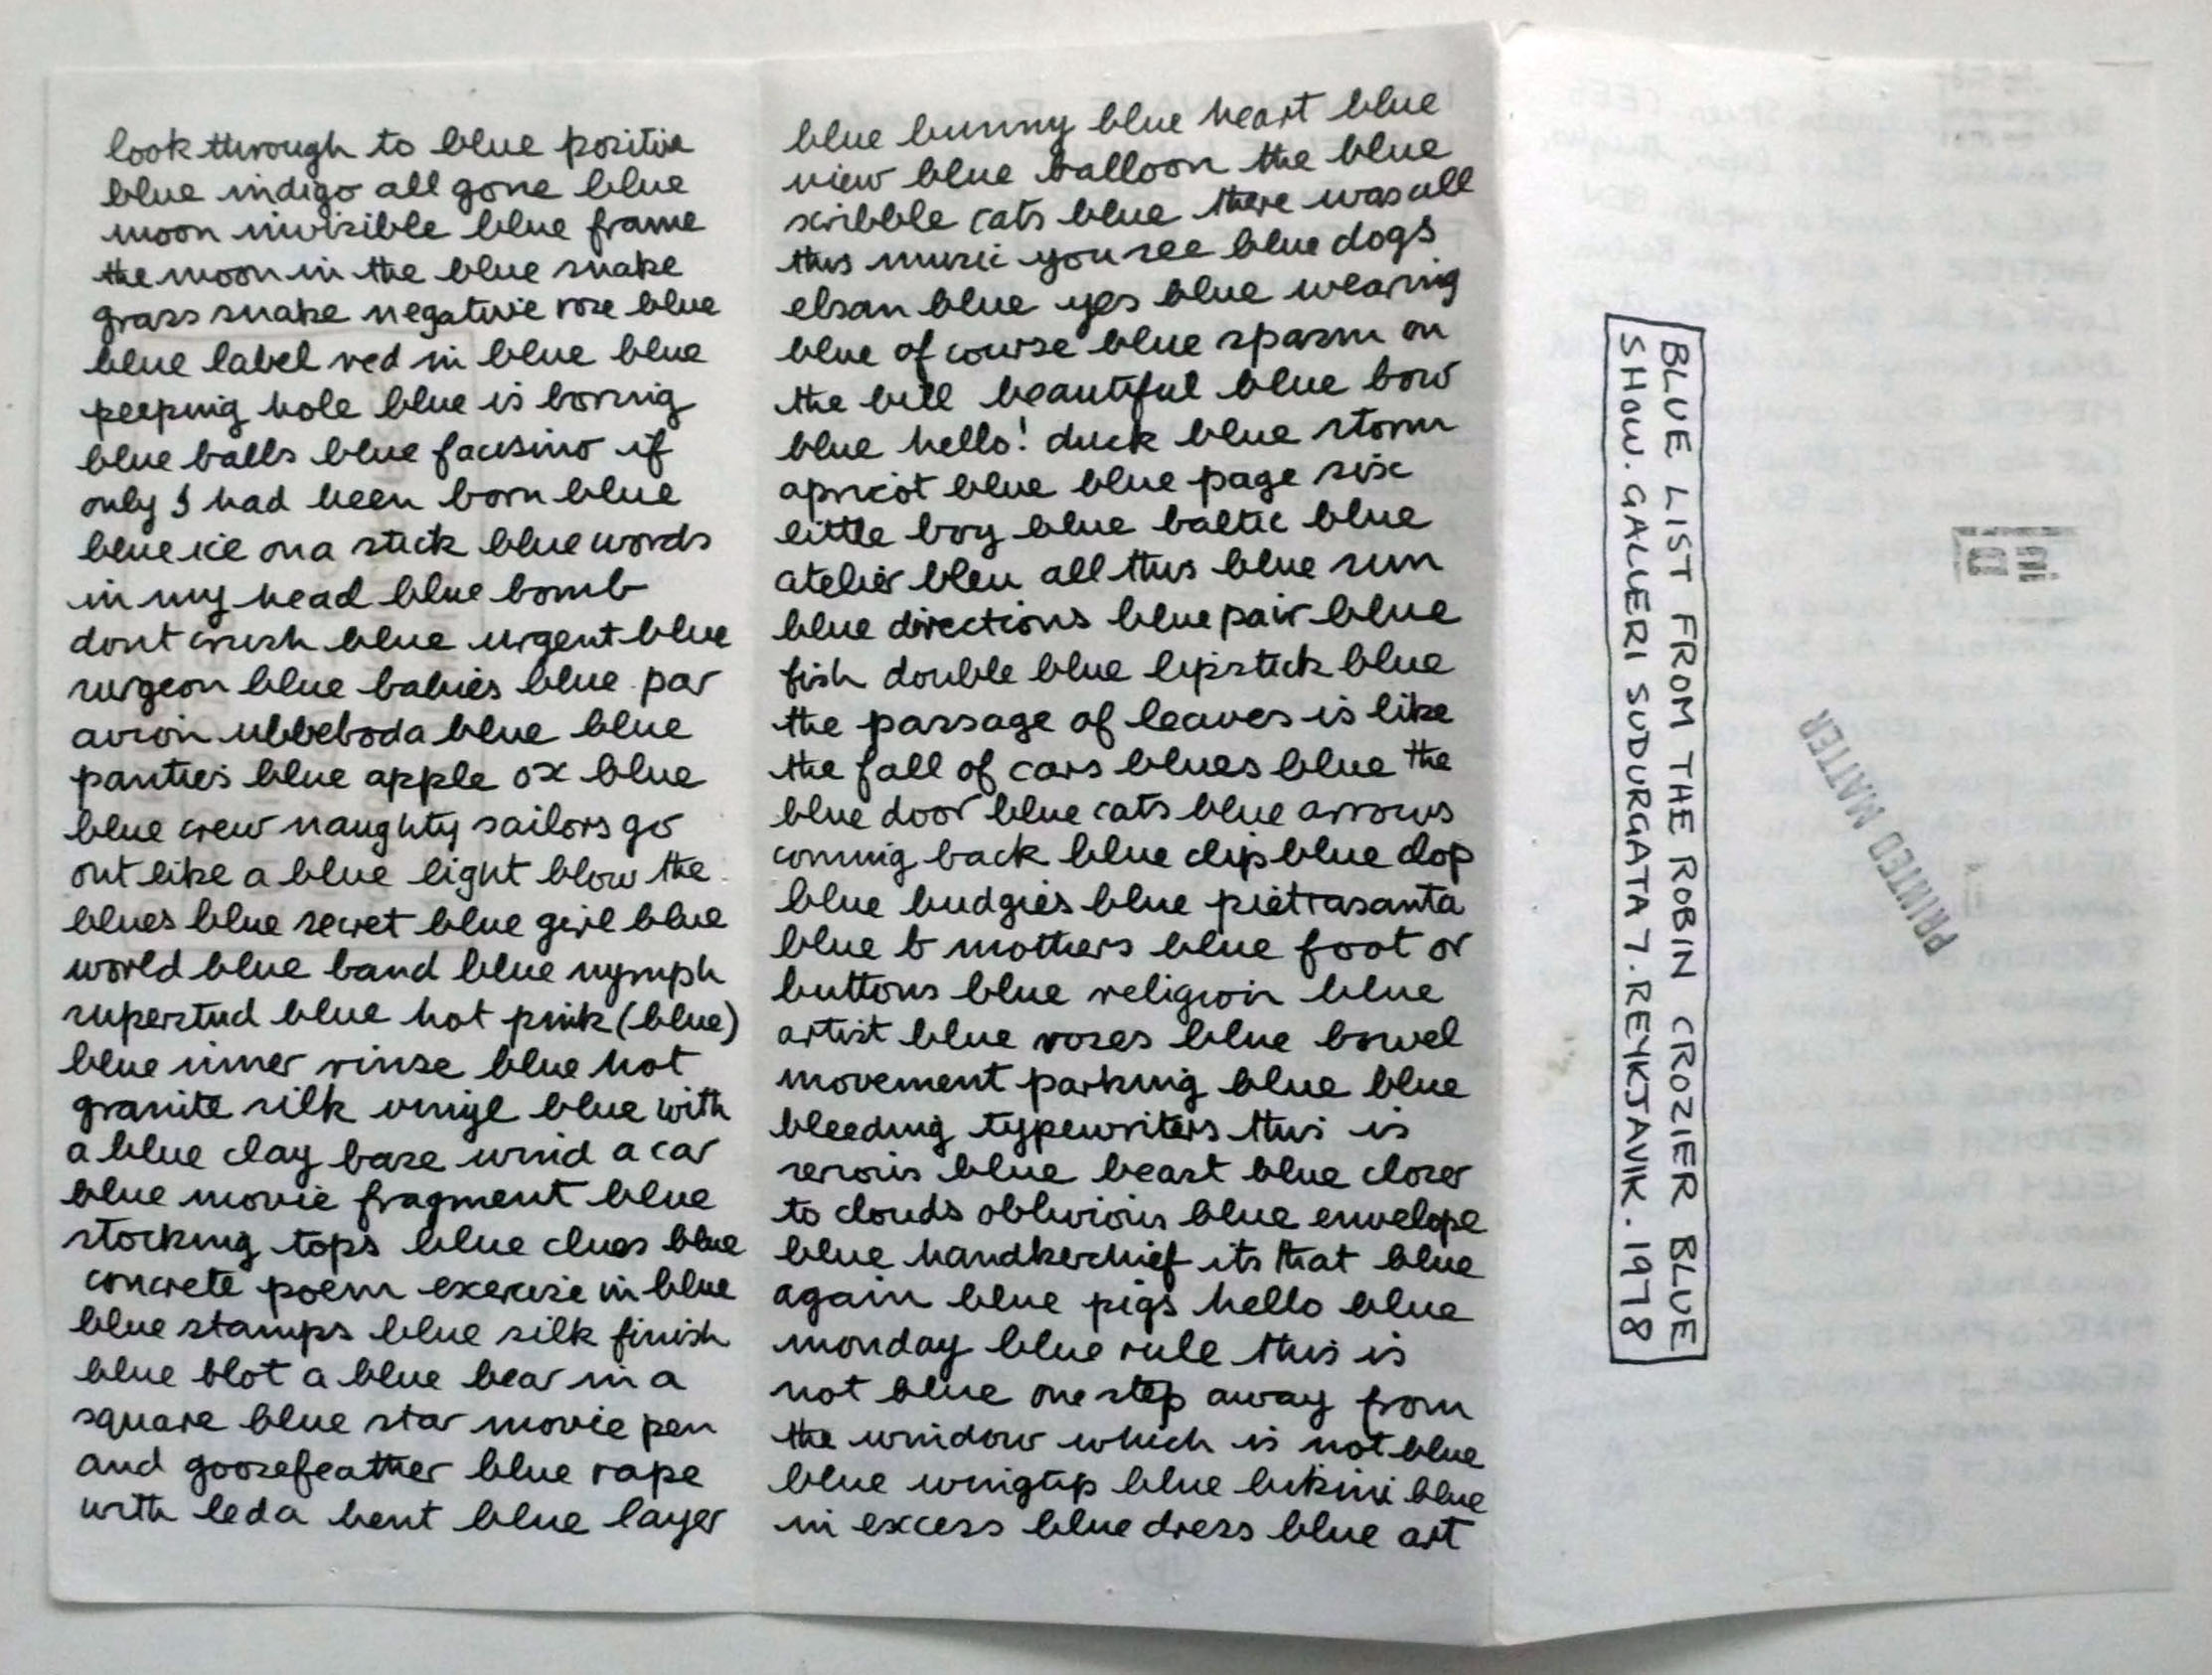 look through to blue positive
blue indigo all gone blue
moon invisible blue frame
the moon in the blue snake
grass snake negative rose blue
blue label red in blue blue
peeping hole blue is boring
blue balls blue if
only I had been born blue
blue ice on a stick blue words
in my head blue bomb
dont crush blue urgent blue
surgeon blue babies blue par
avion ubbeboda blue blue
panties blue apple ox blue
blue crew naughty sailors go
out like a blue light blow the
blues blue secret blue girl blue
world blue band blue nymph
superstud blue hot pink (blue)
blue inner rinse blue hot
granite silk vinyl blue with
a blue clay base wind a car
blue movie fragment blue
stocking tops blue clues blue
concrete poem exercise in blue
blue stamps blue silk finish
blue blot a blue bear in a
square blue star movie pen
and goosefeather blue rape
with leda bent blue layer
blue bunny blue heart blue
view blue balloon the blue
scribble cats blue there was all
this music you see blue dogs
elsan blue yes blue wearing
blue of course blue spasm on
the bill beautiful blue bow
blue hello! duck blue storm
apricot blue blue page six
little boy blue baltic blue
atelier bleu all this blue sun
blue directions blue pair blue
fish double blue lipstick blue
the passage of leaves is like
the fall of cars blues blue the
blue door blue cats blue arrows
coming back blue clip blue clop
blue budgies blue pietrasanta
blue b mothers blue foot or
buttons blue religion blue
artist blue roses blue bowel
movement parking blue blue
bleeding typewriters this is
serious blue beast blue closer
to clouds oblivious blue envelope
blue handkerchief its that blue
again blue pigs hello blue
monday blue rule this is
not blue one step away from
the window which is not blue
blue wingtip blue bikini blue
in excess blue dress blue art
BLUE LIST FROM THE ROBIN CROZIER BLUE
SHOW. GALLERI SUDURGATA 7. REYKJAVIK. 1978
PRINTED MATTER